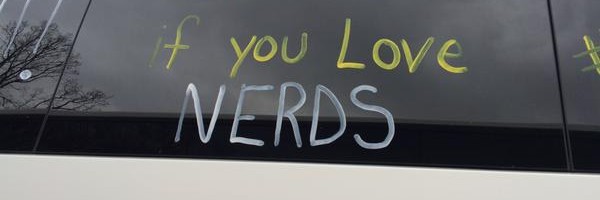 if you Love
NERDS
#